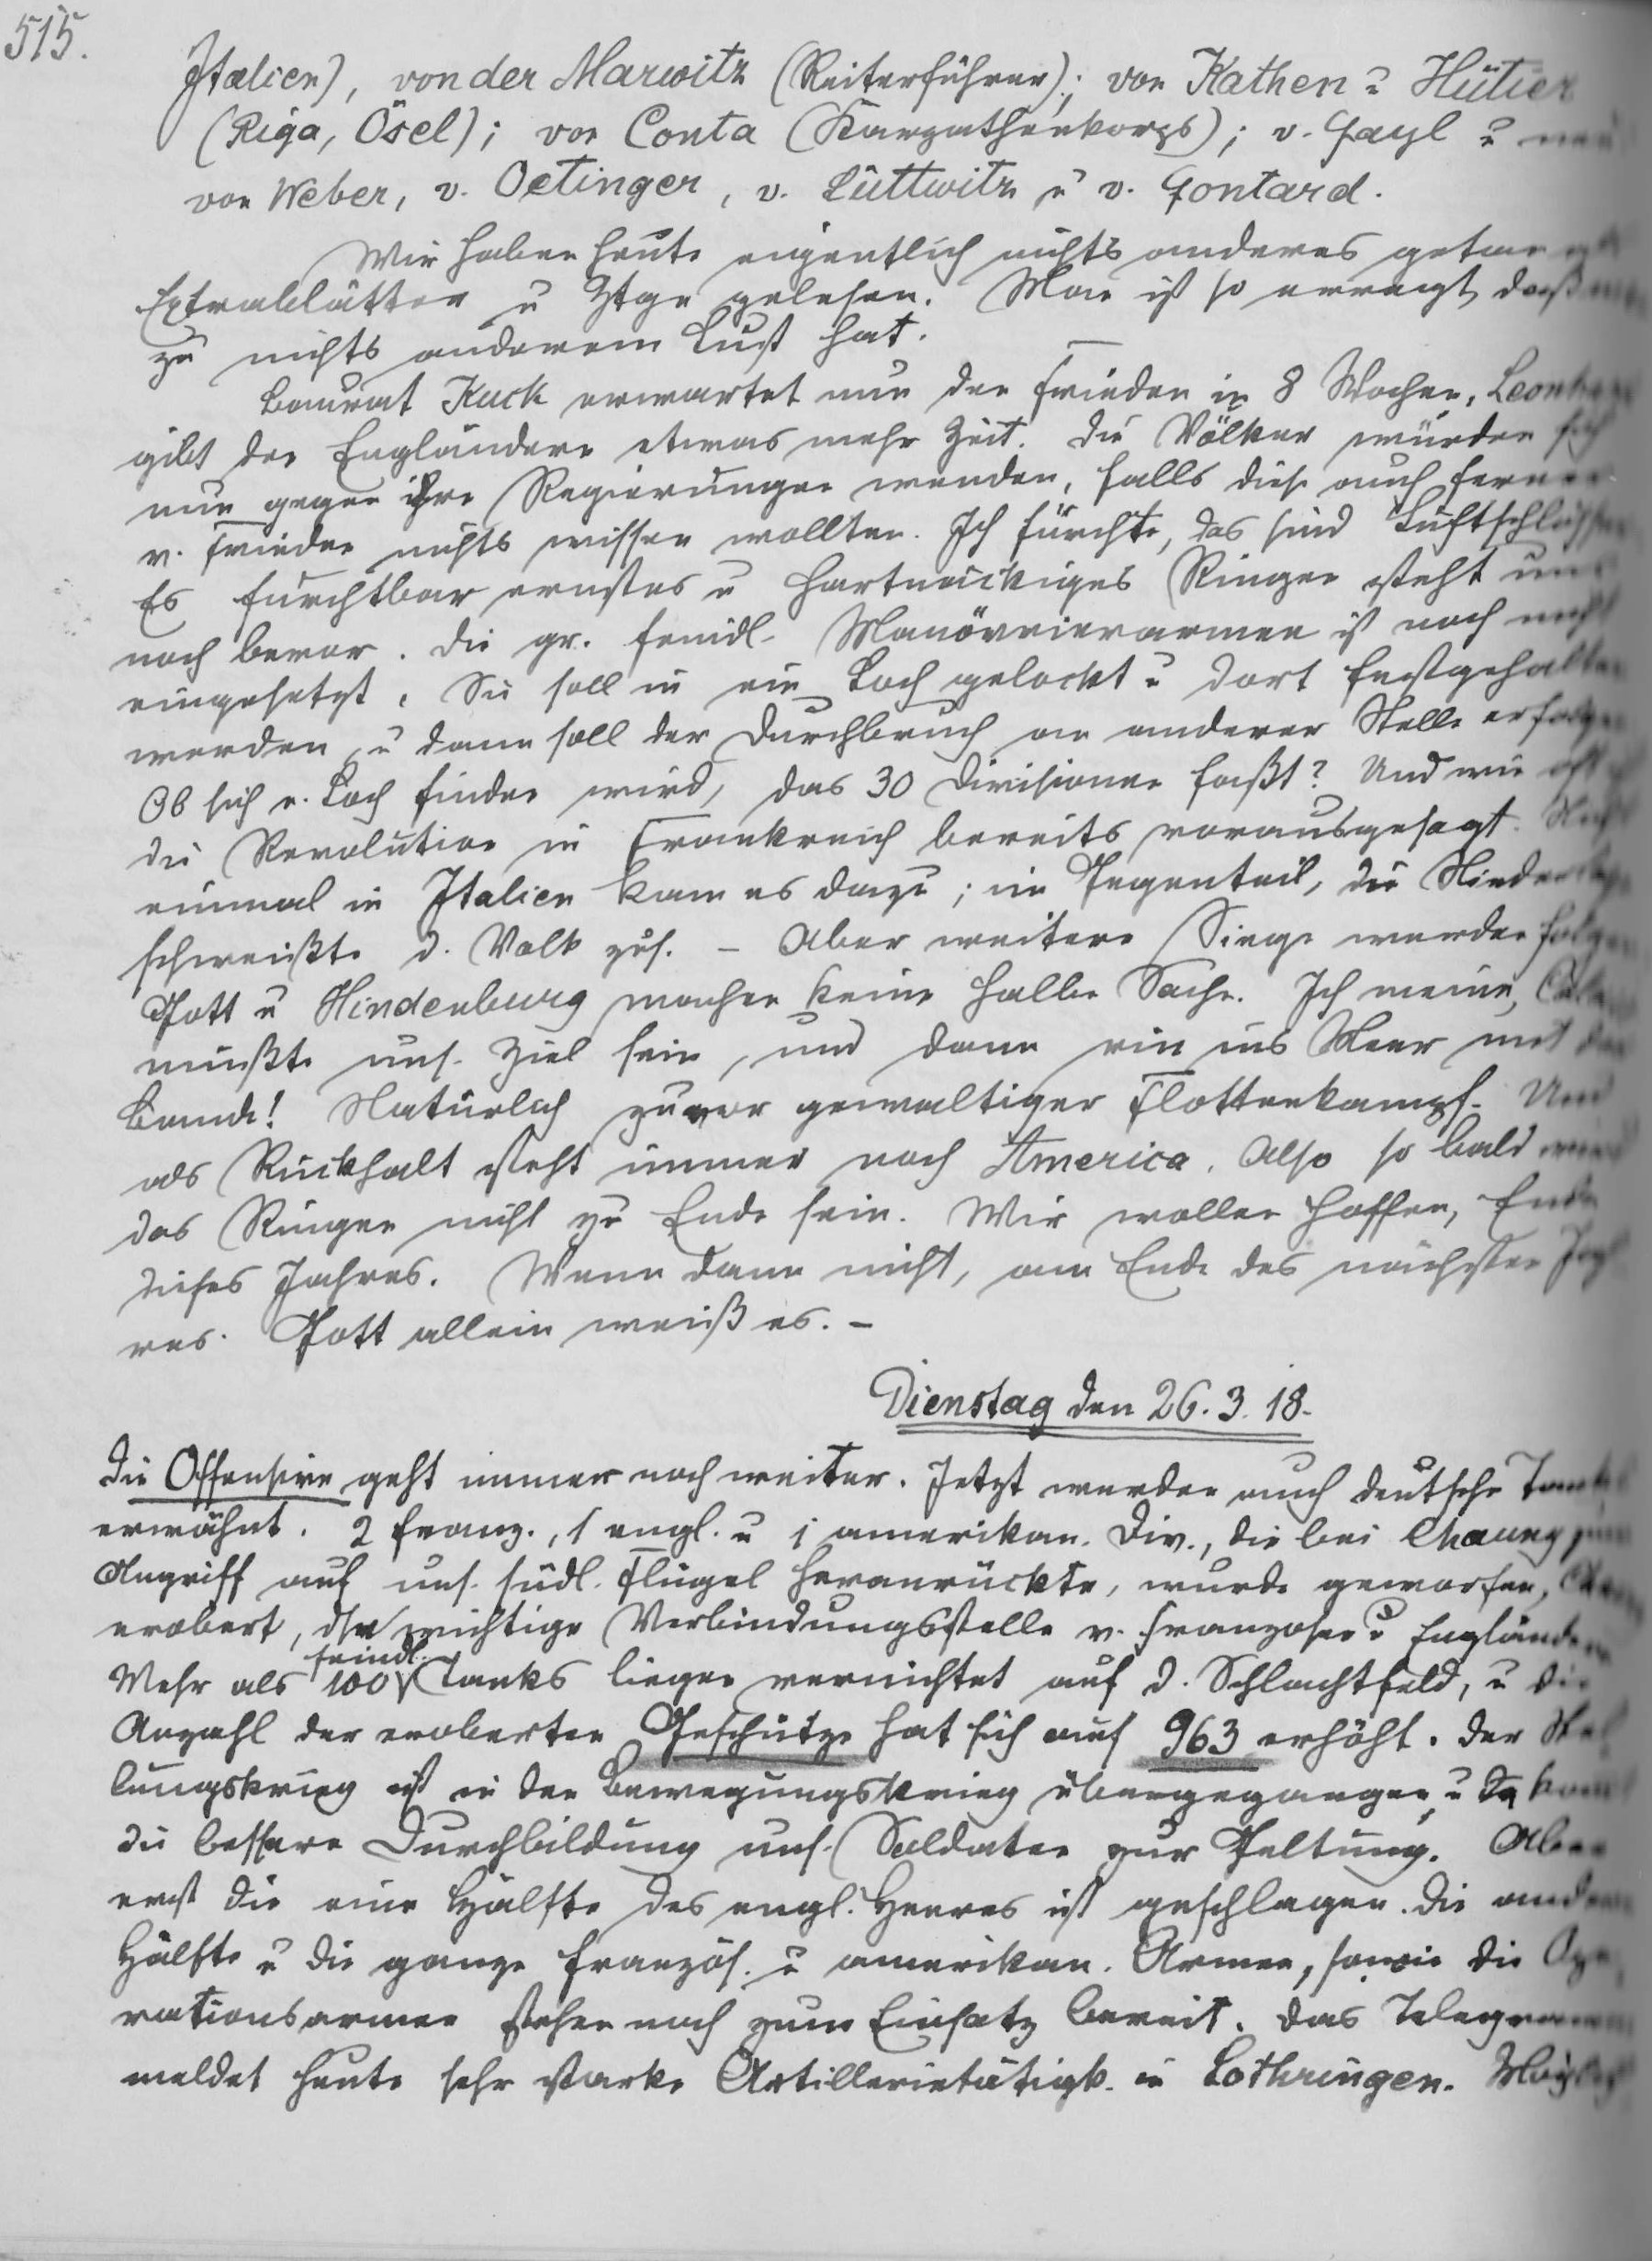 515.
Italien), von der Marwitz (Reiterführer); von Kathen u Hutier
(Riga, Ösel); von Conta (Karpathenkorps); v. Gayl u
von Weber, v. Oetinger, v. Lüttwitz u v. Gontard.
Wir haben heute eigentlich nichts anderes getan
Extrablätter u Ztgn gelesen. Man ist so erregt, daß
zu nichts anderem Lust hat.
Baurat Kuck erwartet nun den Frieden in 8 Wochen,
gibt den Engländern etwas mehr Zeit. Die Völker würden sich
nun gegen ihre Regierungen wenden, falls diese auch ferner
v. Frieden nichts wissen wollten. Ich fürchte, das sind Luftschlösser
Es furchtbar ernstes u hartnäckiges Ringen steht uns
noch bevor. Die gr. feindl. Manövrierarmee ist noch nicht
eingesetzt. Sie soll in ein Loch gelockt u dort festgehalten
werden u dann soll der Durchbruch an anderer Stelle erfolgen
Ob sich e. Loch finden wird, das 30 Divisionen faßt? Und wie oft
die Revolution in Frankreich bereits vorausgesagt. Nicht
einmal in Italien kam es dazu; im Gegenteil, die Niederlage
schweißte d. Volk zus. – Aber weitere Siege werden folgen
Gott u Hindenburg machen keine halbe Sache. Ich meine,
müßte uns. Ziel sein, und dann rin ins Meer mit der
Bande! Natürlich zuvor gewaltiger Flottenkampf. Und
als Rückhalt steht immer noch America. Also so bald wird
das Ringen nicht zu Ende sein. Wir wollen hoffen, Ende
dieses Jahres. Wenn dann nicht, am Ende des nächsten Jah
res. Gott allein weiß es. –
Dienstag den 26. 3. 18.
Die Offensive geht immer noch weiter. Jetzt werden auch deutsche Tanks
erwähnt. 2 franz., 1 engl. u 1 amerikan. Div., die bei Chauny zum
Angriff auf uns. südl. Flügel heranrückte, wurde geworfen,
erobert, wichtige Verbindungsstelle v. Franzosen u Engländern
Mehr als 100 feindl. Tanks liegen vernichtet auf d. Schlachtfeld, u die
Anzahl der eroberten Geschütze hat sich auf 963 erhöht. Der Stel
lungskrieg ist in den Bewegungskrieg übergegangen, u da kommt
die bessere Durchbildung uns. Soldaten zur Geltung. Aber
erst die eine Hälfte des engl. Heeres ist geschlagen. Die andere
Hälfte u die ganze französ. u amerikan. Armee, sowie die Ope
rationsarmee stehen noch zum Einsatz bereit. Das Telegramm
meldet heute sehr starke Artillerietätigk. in Lothringen.